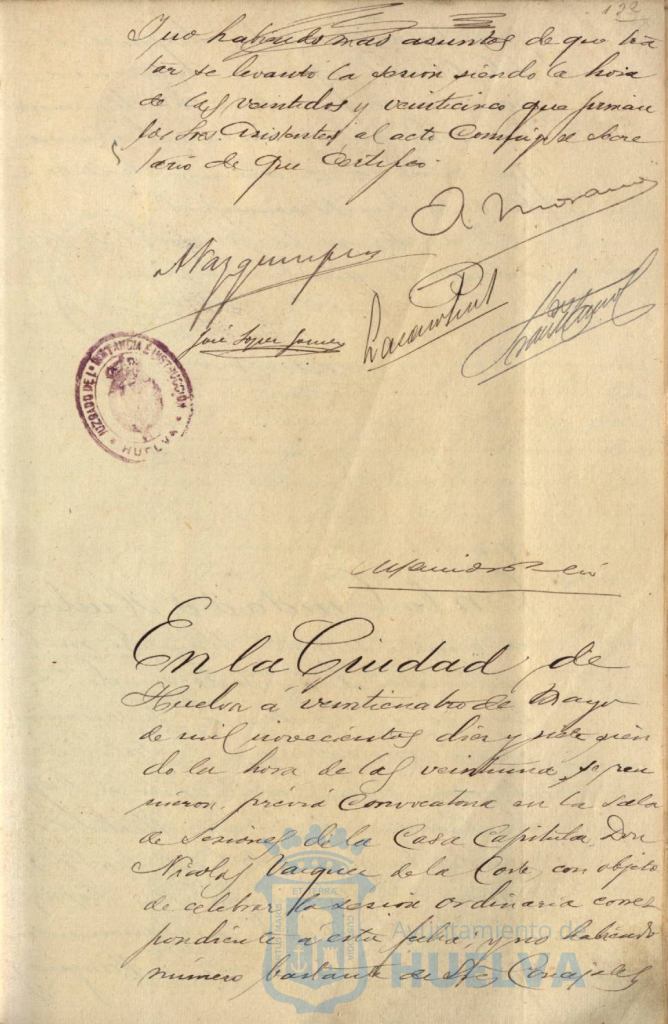 132
Y no habiendo mas asuntos de que tra
tar se levantó la sesion siendo la hora
de las veintidos y veinticinco que firman
los Sres. Asistentes al acto Conmigo el Secre
tario de que Certifico.
A. Moreno
José Lopez Gomez
JUZGADO DE 1ª INSTANCIA E INSTRUCCIÓN
* HUELVA *
En la Ciudad de
Huelva á veinticuatro de Mayo
de mil novecientos diez y siete sien
do la hora de las veintiuna, se reu
nieron, prévia Convocatoria en la sala
de Sesiones de la Casa Capitular, Don
Nicolas Vazquez de la Corte con objeto
de celebrar la sesion ordinaria corres
pondiente á esta fecha, y no habiendo
número bastante de Sres. Concejales
Ayuntamiento de
HUELVA